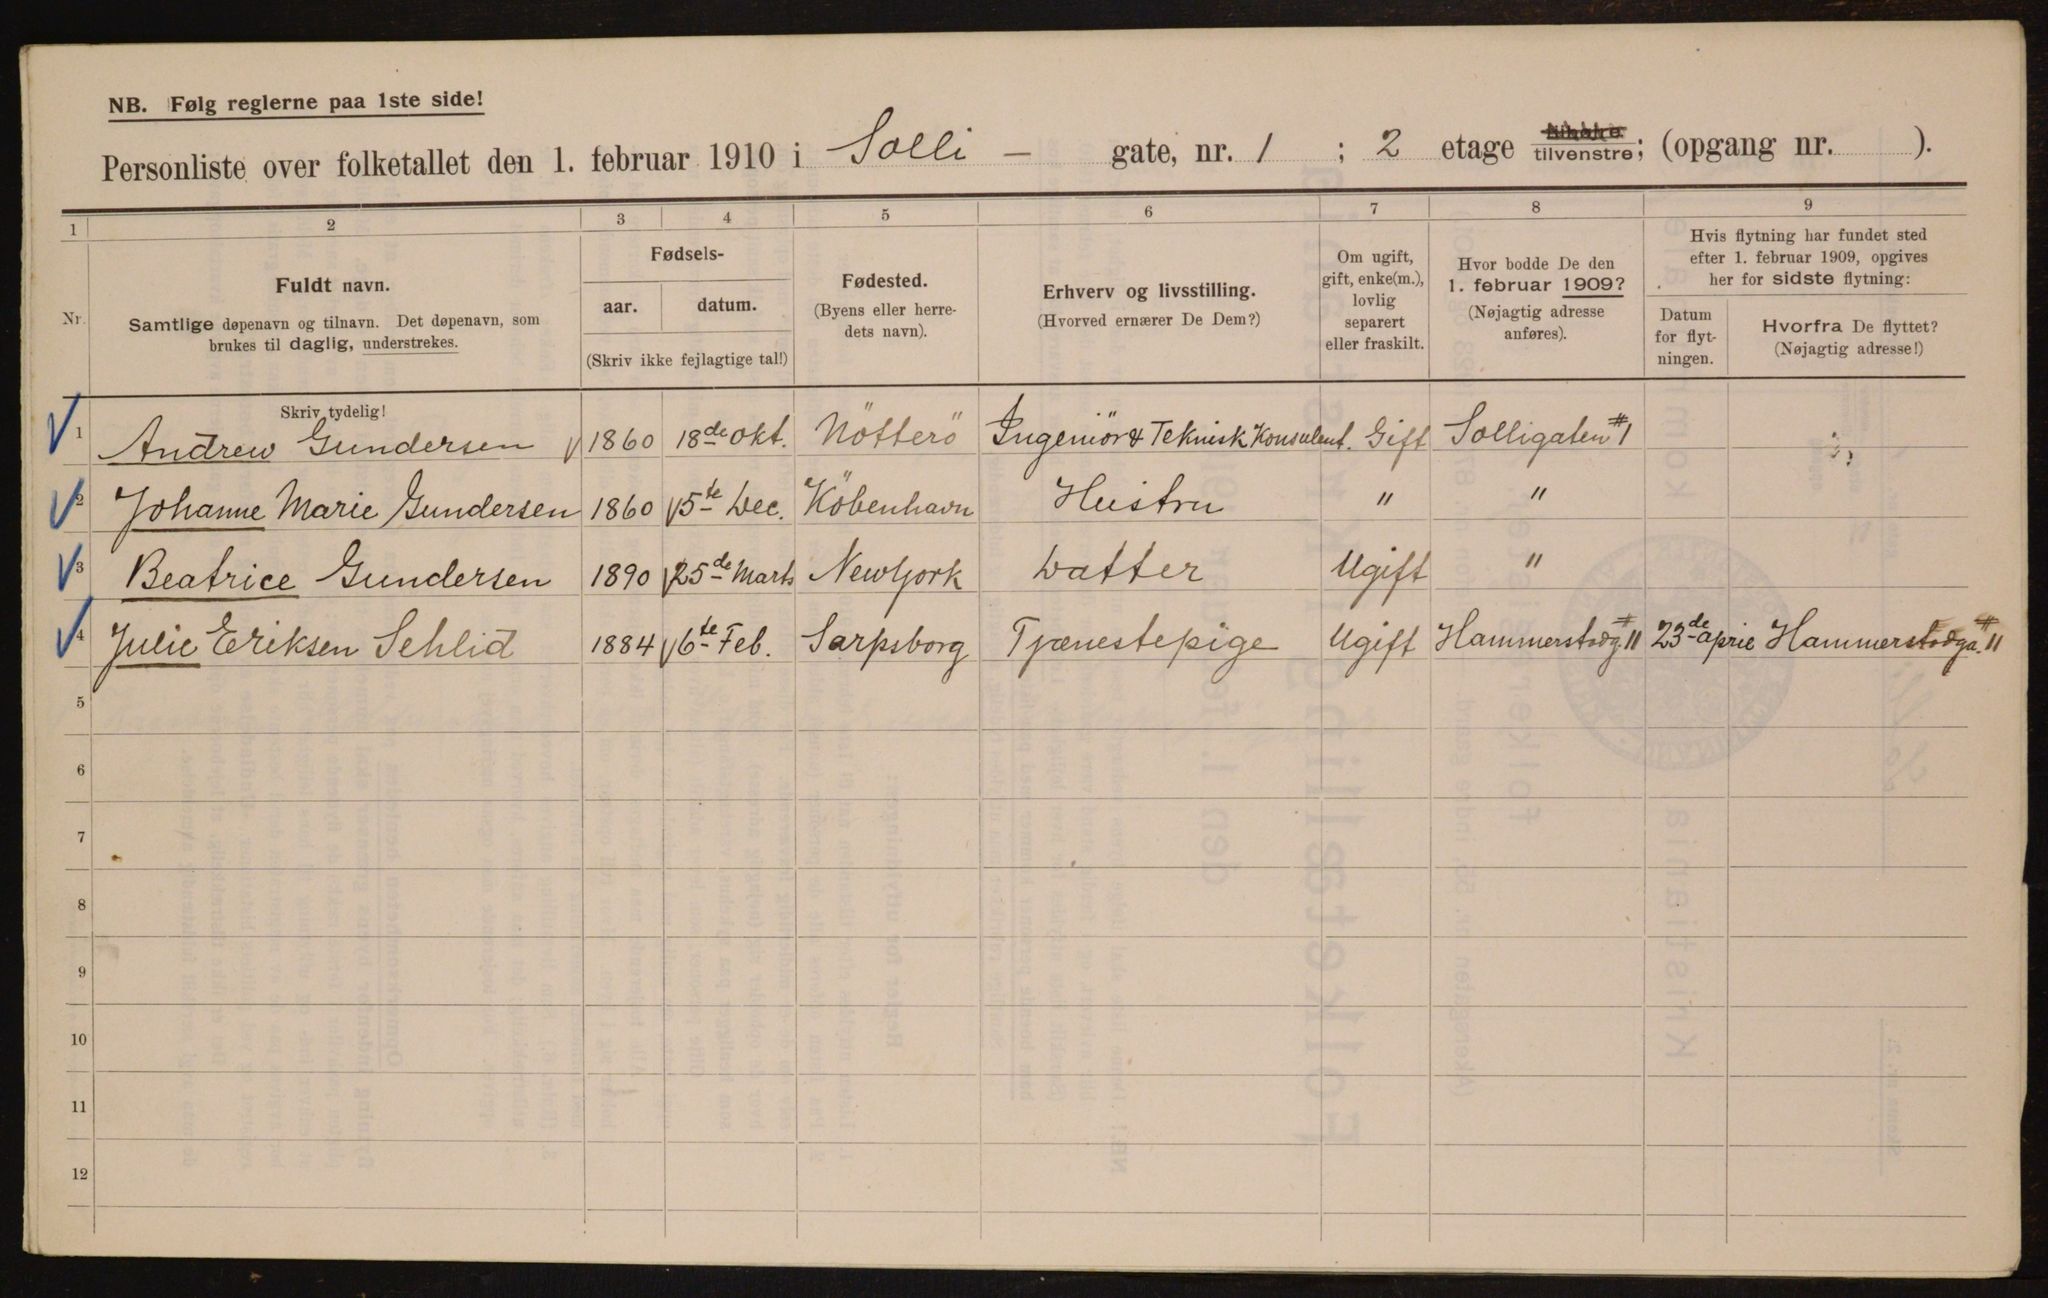 NB. Følg reglerne paa 1ste side!
Personliste over folketallet den 1. februar 1910 i Solli - gate, nr. 1 ; 2 etage tilvenstre; (opgang nr. ).
1 2 3 4 5 6 7 8 9
Nr.
Fuldt navn.
Samtlige døpenavn og tilnavn. Det døpenavn, som
brukes til daglig, understrekes.
Skriv tydelig!
Fødsels-
aar. datum.
(Skriv ikke feilagtige tal!)
Fødested.
(Byens eller herre-
dets navn).
Erhverv og livsstilling.
(Hvorved ernærer De Dem?)
Om ugift,
gift, enke(m.),
lovlig
separert
eller fraskilt.
Hvor bodde De den
1. februar 1909?
(Nøjagtig adresse
anføres).
Hvis flytning har fundet sted
efter 1. februar 1909, opgives
her for sidste flytning:
Datum
for flyt-
ningen.
Hvorfra De flyttet?
(Nøjagtig adresse!)
1 Andrew Gundersen 1860 18de Okt. Nötterö Ingeniör & Teknisk Konsulent. Gift Solligaten #1
2 Johanne Marie Gundersen 1860 5te Dec. Köbenhavn Hustru " "
3 Beatrice Gundersen 1890 25de Marts New York Datter Ugift "
4 Julie Eriksen Sehlid 1884 6te Feb. Sarpsborg Tjænestepige Ugift Hammerstadg. #11 23de April Hammerstadga. #11
5
6
7
8
9
10
11
12